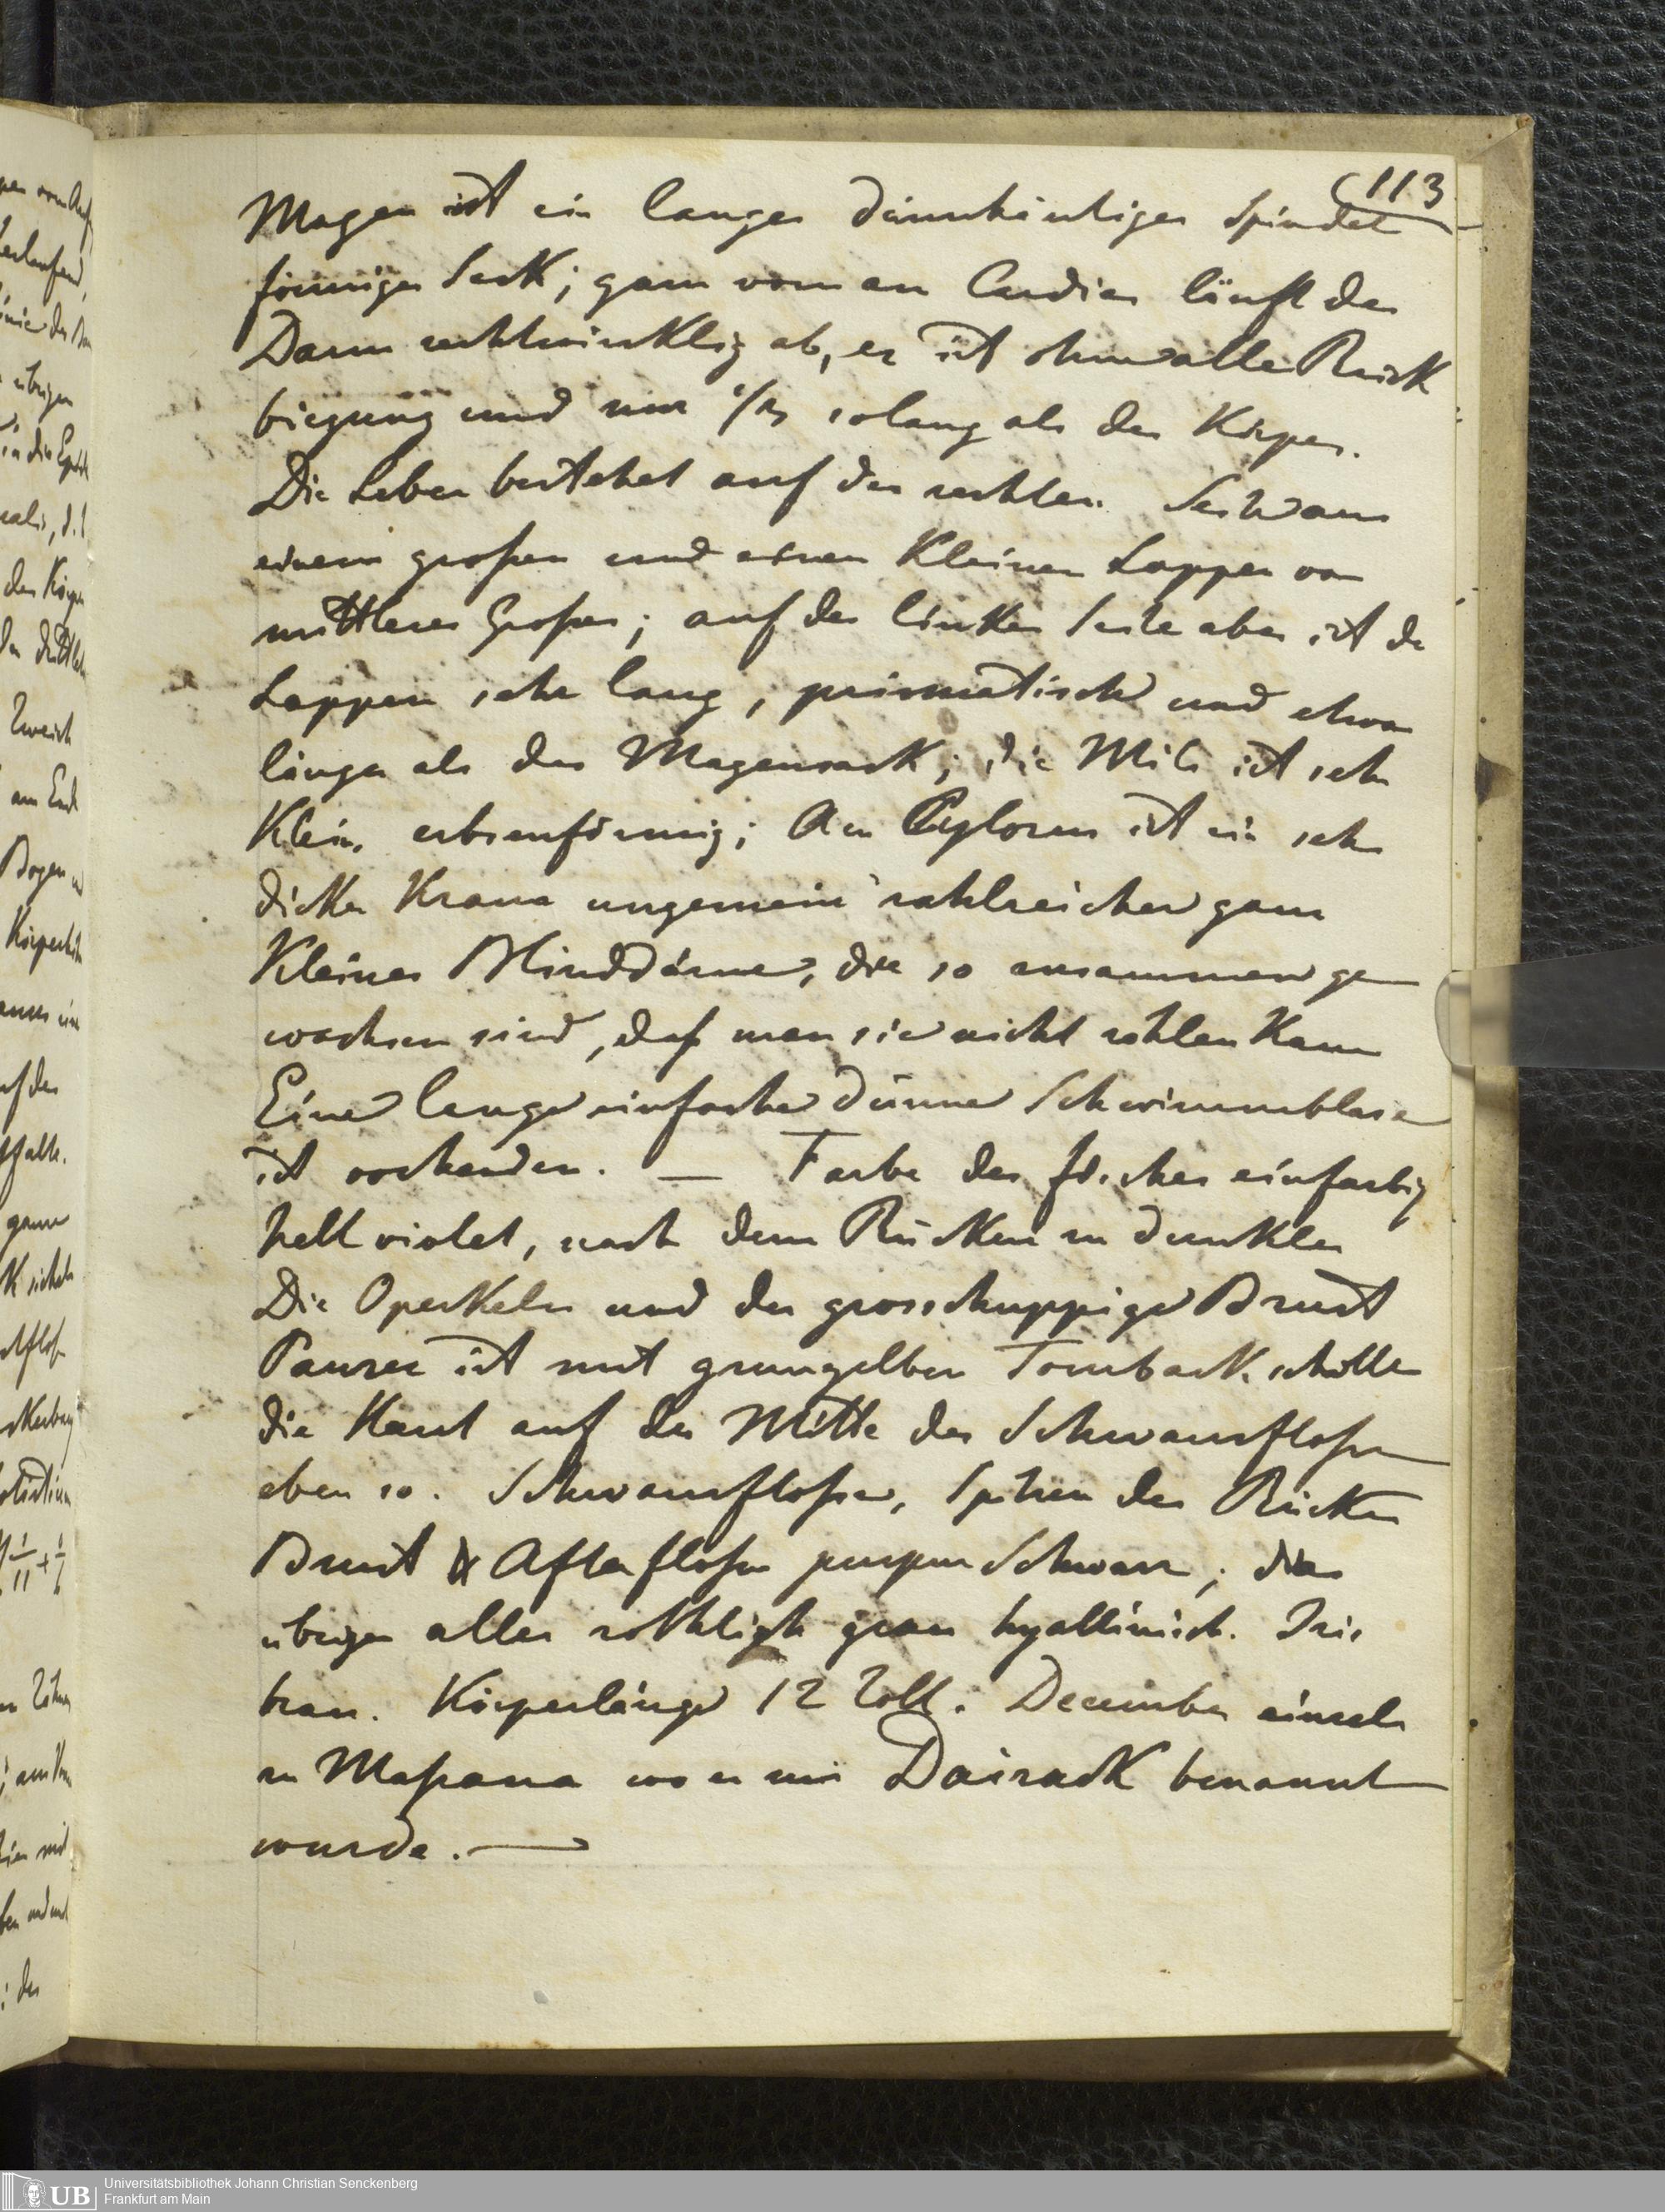 113
Magen ist ein langer dünnhäutiger Spindel
förmiger Sack; ganz vorn an Cardia läuft der
Darm rechtwinklig ab, er ist ohne alle Rück
biegung und nur so lang als der Körper.
Die Leber bestehet auf der rechten Seite aus
einem großen und einen Kleinen Lappen von
mittlerer Großer; auf der linken Seite aber ist der
Lappen sehr lang, prismatisch und etwas
länger als der Magensack; die Milz ist sehr
Klein, erbsenförmig; Am Pylorus ist ein sehr
dicker Kranz ungemein zahlreicher ganz
Kleiner Blinddärme, die so zusammen ge
wachsen sind, daß man sie nicht zählen Kann
Eine lange einfache dünne Schwimmblase
ist vorhanden. — Farbe des fisches einfarbig
hell violet, nach dem Rücken zu dunkler
Die Operkeln und der grosschuppige Brust
Panzer ist mit grungelben Tomback schiller
die Haut auf der Mitte der Schwanzfloße
eben so. Schwanzfloße, Spitzen der Rücken
Brust & Afterfloße purpur Schwarz; die
übrigen alles rothlich grau hyallinisch. Iris
braun. Körperlänge 12 Zoll. December einzeln
zu Maßaua wo er mir Dairack benannt
wurde. —
Universitätsbibliothek Johann Christian Senckenberg
Frankfurt am Main
UB